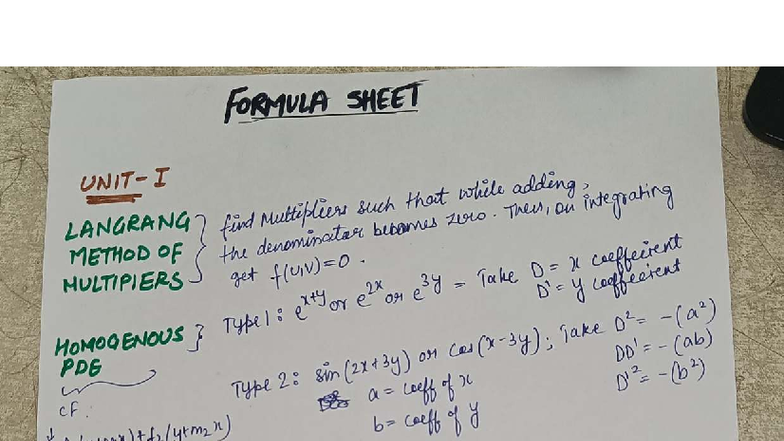 FORMULA SHEET
UNIT-I
LANGRANG METHOD OF MULTIPIERS } find Multipliers such that while adding,
the denominator becomes zero. Then, on integrating
get f(u,v)=0.
HOMOGENOUS PDE } Type 1: e^x+y or e^2x or e^3y = Take D = x coeffecient
D' = y coeffecient
Type 2: sin(2x+3y) or cos(x-3y); Take D² = -(a²)
a = coeff of x DD' = -(ab)
b = coeff of y D'² = -(b²)
CF:
f₂(y+m₂x)